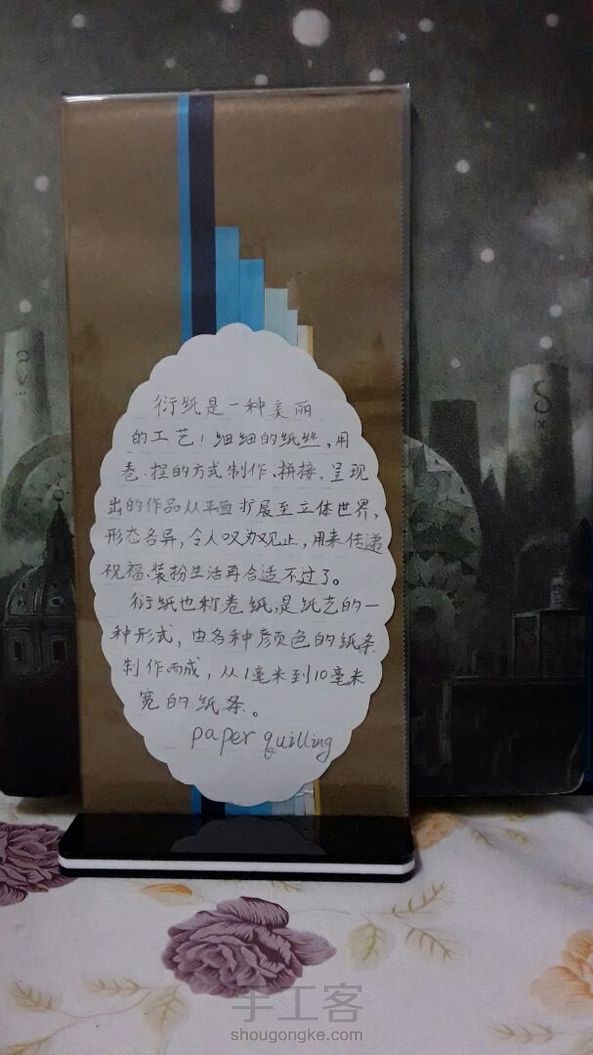 衍纸是一种美丽
的工艺！细细的纸丝,用
卷、捏的方式制作、拼接、呈现
出的作品从平面扩展至立体世界,
形态各异,令人叹为观止,用来传递
祝福、装扮生活再合适不过了。
衍纸也称卷纸,是纸艺的一
种形式,由各种颜色的纸条
制作而成,从1毫米到10毫米
宽的纸条。
paper quilling
手工客
shougongke.com